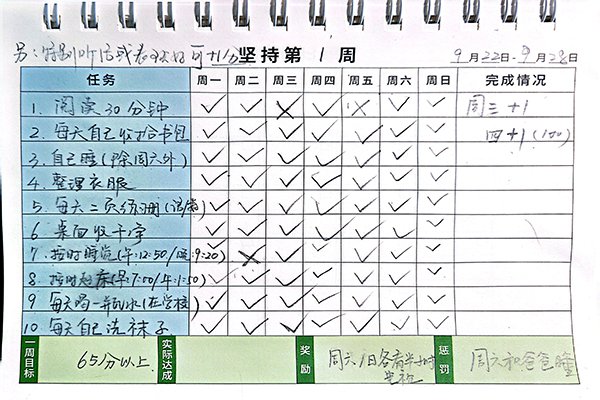 另:特别听话或表现好可+1分 坚持第1周 9月22日-9月28日
任务 周一 周二 周三 周四 周五 周六 周日 完成情况
1. 阅读30分钟 ✓ ✓ × ✓ × ✓ ✓ 周三+1
2. 每天自己收拾书包 ✓ ✓ ✓ ✓ ✓ ✓ ✓ 四+1
3. 自己睡(除周六外) ✓ ✓ ✓ ✓ ✓ ✓ ✓
4. 整理衣服 ✓ ✓ ✓ ✓ ✓ ✓ ✓
5. 每天二页练习册 ✓ ✓ ✓ ✓ ✓ ✓ ✓
6 桌面收干净 ✓ ✓ ✓ ✓ ✓ ✓ ✓
7 按时睡觉(午:12:50/晚:9:20) ✓ × ✓ ✓ ✓ ✓ ✓
8 按时起床(早7:00/午:1:50) ✓ ✓ ✓ ✓ ✓ ✓ ✓
9 每天喝一瓶水(在学校) ✓ ✓ ✓ ✓ ✓ ✓ ✓
10 每天自己洗袜子 ✓ ✓ ✓ ✓ ✓ ✓ ✓
一周目标 65分以上 实际达成 奖励 周六/日各看半小时 惩罚 周六和爸爸睡